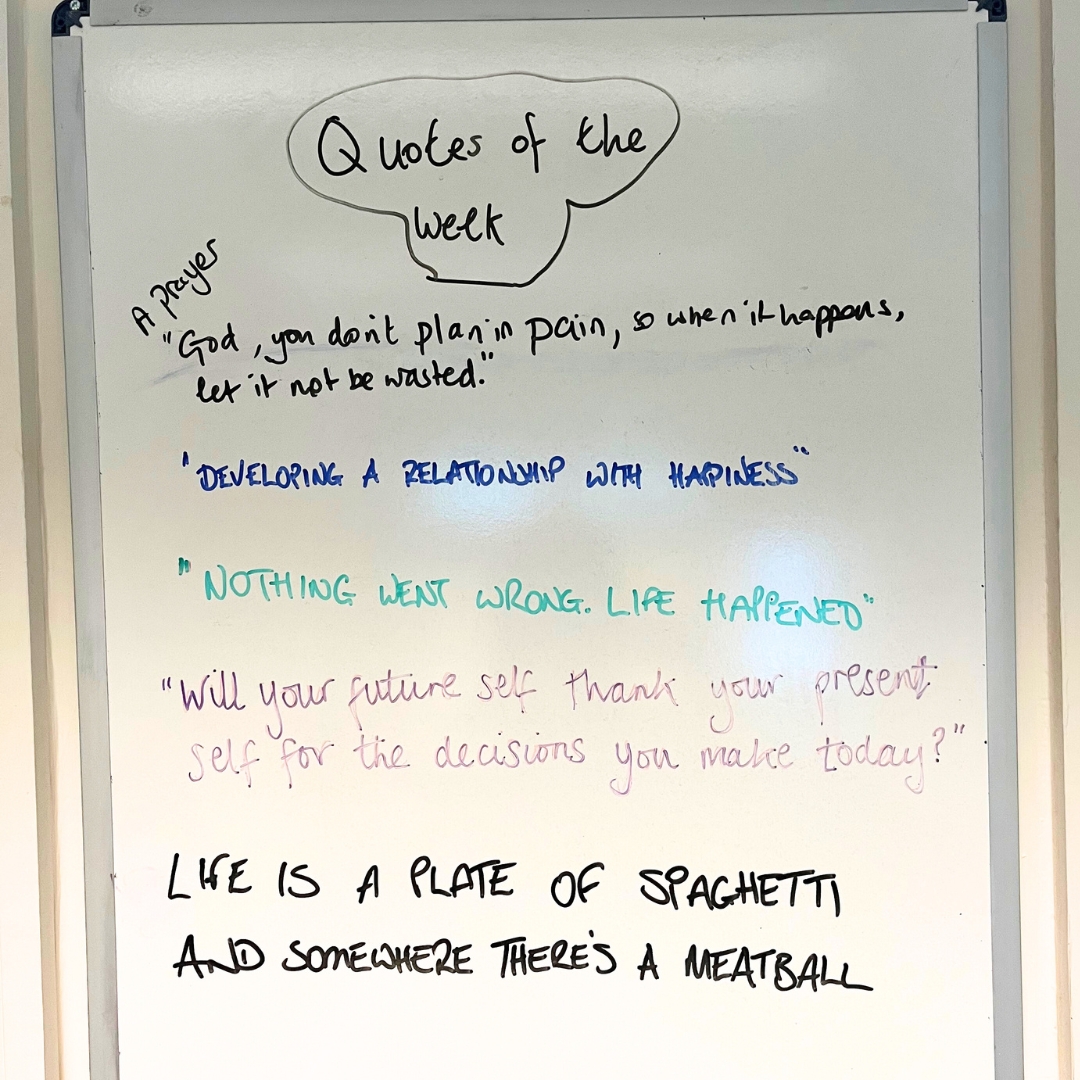 Quotes of the
week
A prayer
"God, you don't plan in pain, so when it happens,
let it not be wasted."
'DEVELOPING A RELATIONSHIP WITH HAPPINESS"
"NOTHING WENT WRONG. LIFE HAPPENED"
"Will your future self thank your present
self for the decisions you make today?"
LIFE IS A PLATE OF SPAGHETTI
AND SOMEWHERE THERE'S A MEATBALL